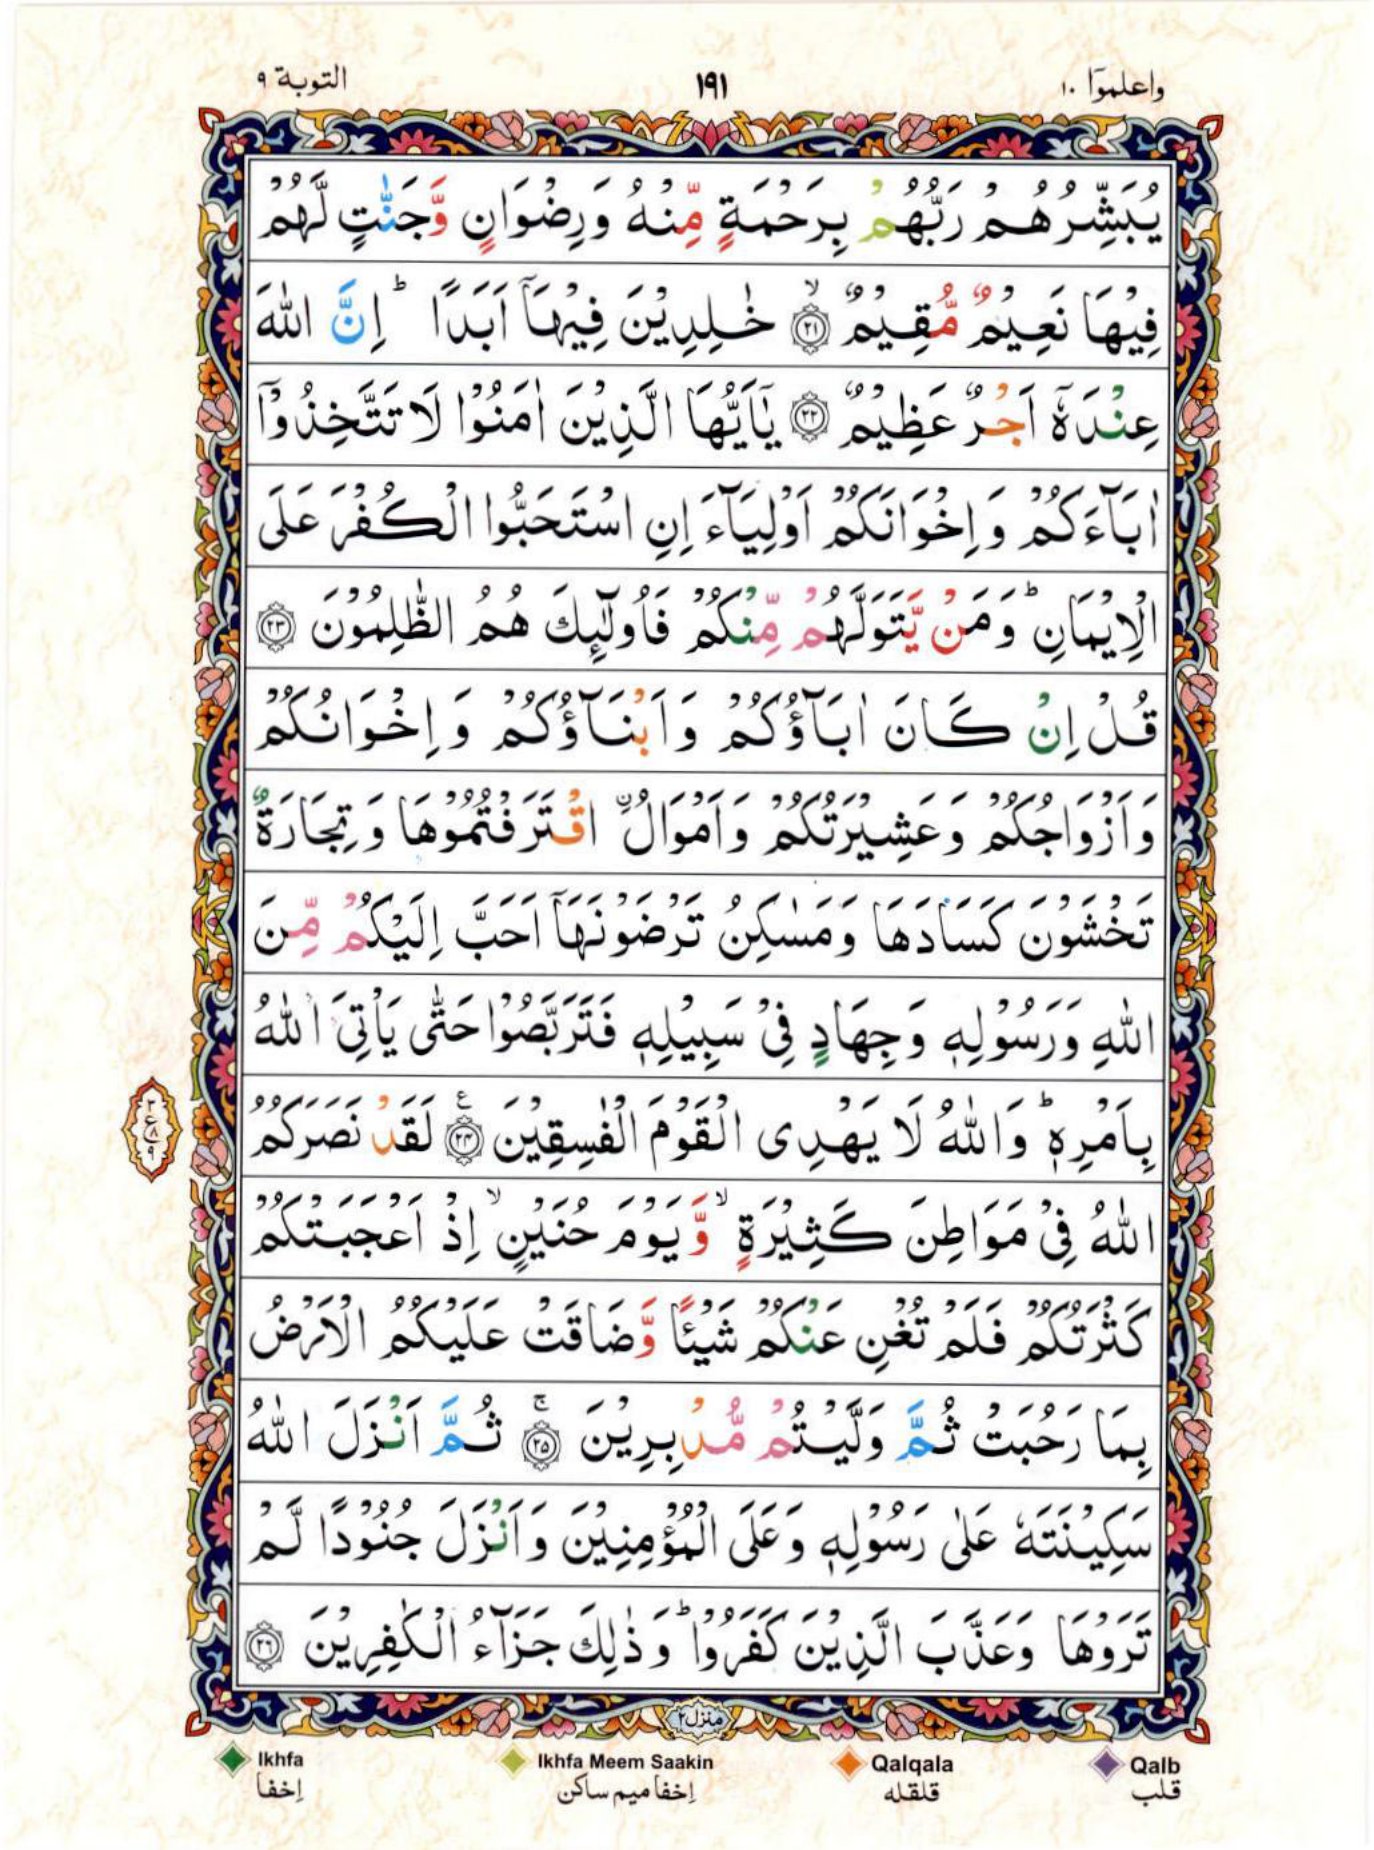 واعلموٓا ١٠
١٩١
التوبة ٩
يُبَشِّرُهُمْ رَبُّهُمْ بِرَحْمَةٍ مِّنْهُ وَرِضْوَانٍ وَّجَنّٰتٍ لَّهُمْ
فِيْهَا نَعِيْمٌ مُّقِيْمٌ ۙ‏﴿٢١﴾ خٰلِدِيْنَ فِيْهَاۤ اَبَدًا ؕ اِنَّ اللّٰهَ
عِنْدَهٗۤ اَجْرٌ عَظِيْمٌ ﴿٢٢﴾ يٰۤاَيُّهَا الَّذِيْنَ اٰمَنُوْا لَا تَتَّخِذُوْۤا
اٰبَآءَكُمْ وَاِخْوَانَكُمْ اَوْلِيَآءَ اِنِ اسْتَحَبُّوا الْكُفْرَ عَلَى
الْاِيْمَانِ ؕ وَمَنْ يَّتَوَلَّهُمْ مِّنْكُمْ فَاُولٰٓئِكَ هُمُ الظّٰلِمُوْنَ ﴿٢٣﴾
قُلْ اِنْ كَانَ اٰبَآؤُكُمْ وَاَبْنَآؤُكُمْ وَاِخْوَانُكُمْ
وَاَزْوَاجُكُمْ وَعَشِيْرَتُكُمْ وَاَمْوَالُ ۨاقْتَرَفْتُمُوْهَا وَتِجَارَةٌ
تَخْشَوْنَ كَسَادَهَا وَمَسٰكِنُ تَرْضَوْنَهَاۤ اَحَبَّ اِلَيْكُمْ مِّنَ
اللّٰهِ وَرَسُوْلِهٖ وَجِهَادٍ فِيْ سَبِيْلِهٖ فَتَرَبَّصُوْا حَتّٰى يَاْتِيَ اللّٰهُ
بِاَمْرِهٖ ؕ وَاللّٰهُ لَا يَهْدِى الْقَوْمَ الْفٰسِقِيْنَ ۧ﴿٢٤﴾ لَقَدْ نَصَرَكُمُ
٣ ع ٨ ٩
اللّٰهُ فِيْ مَوَاطِنَ كَثِيْرَةٍ ۙ وَّيَوْمَ حُنَيْنٍ ۙ اِذْ اَعْجَبَتْكُمْ
كَثْرَتُكُمْ فَلَمْ تُغْنِ عَنْكُمْ شَيْـًٔا وَّضَاقَتْ عَلَيْكُمُ الْاَرْضُ
بِمَا رَحُبَتْ ثُمَّ وَلَّيْتُمْ مُّدْبِرِيْنَ ۚ﴿٢٥﴾ ثُمَّ اَنْزَلَ اللّٰهُ
سَكِيْنَتَهٗ عَلٰى رَسُوْلِهٖ وَعَلَى الْمُؤْمِنِيْنَ وَاَنْزَلَ جُنُوْدًا لَّمْ
تَرَوْهَا وَعَذَّبَ الَّذِيْنَ كَفَرُوْا ؕ وَذٰلِكَ جَزَآءُ الْكٰفِرِيْنَ ﴿٢٦﴾
منزل ٢
Ikhfa Ikhfa Meem Saakin Qalqala Qalb
إخفا إخفا ميم ساكن قلقله قلب